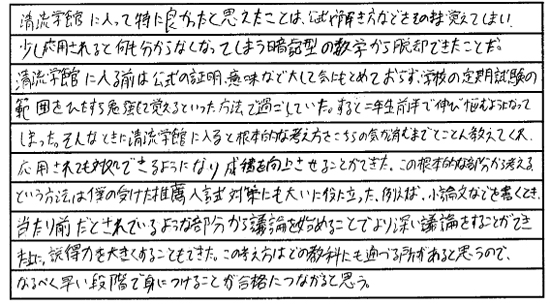 清流学館に入って特に良かったと思えたことは、公式や解き方などをそのまま覚えてしまい
少し応用されると何も分からなくなってしまう暗記型の数学から脱却できたことだ。
清流学館に入る前は公式の証明、意味など大して気にもとめておらず、学校の定期試験の
範囲をひたすら勉強して覚えるといった方法で過ごしていた。すると二年生前半で伸び悩むようになって
しまった。そんなときに清流学館に入ると根本的な考え方をこちらの気が済むまでとことん教えてくれ、
応用されても対処できるようになり成績を向上させることができた。この根本的な部分から考える
という方法は僕の受けた推薦入試対策にも大いに役に立った。例えば、小論文などを書くとき、
当たり前だとされているような部分から議論を始めることでより深い議論をすることができ
た上に、説得力を大きくすることもできた。この考え方はどの教科にも通づる所があると思うので、
なるべく早い段階で身につけることが合格につながると思う。